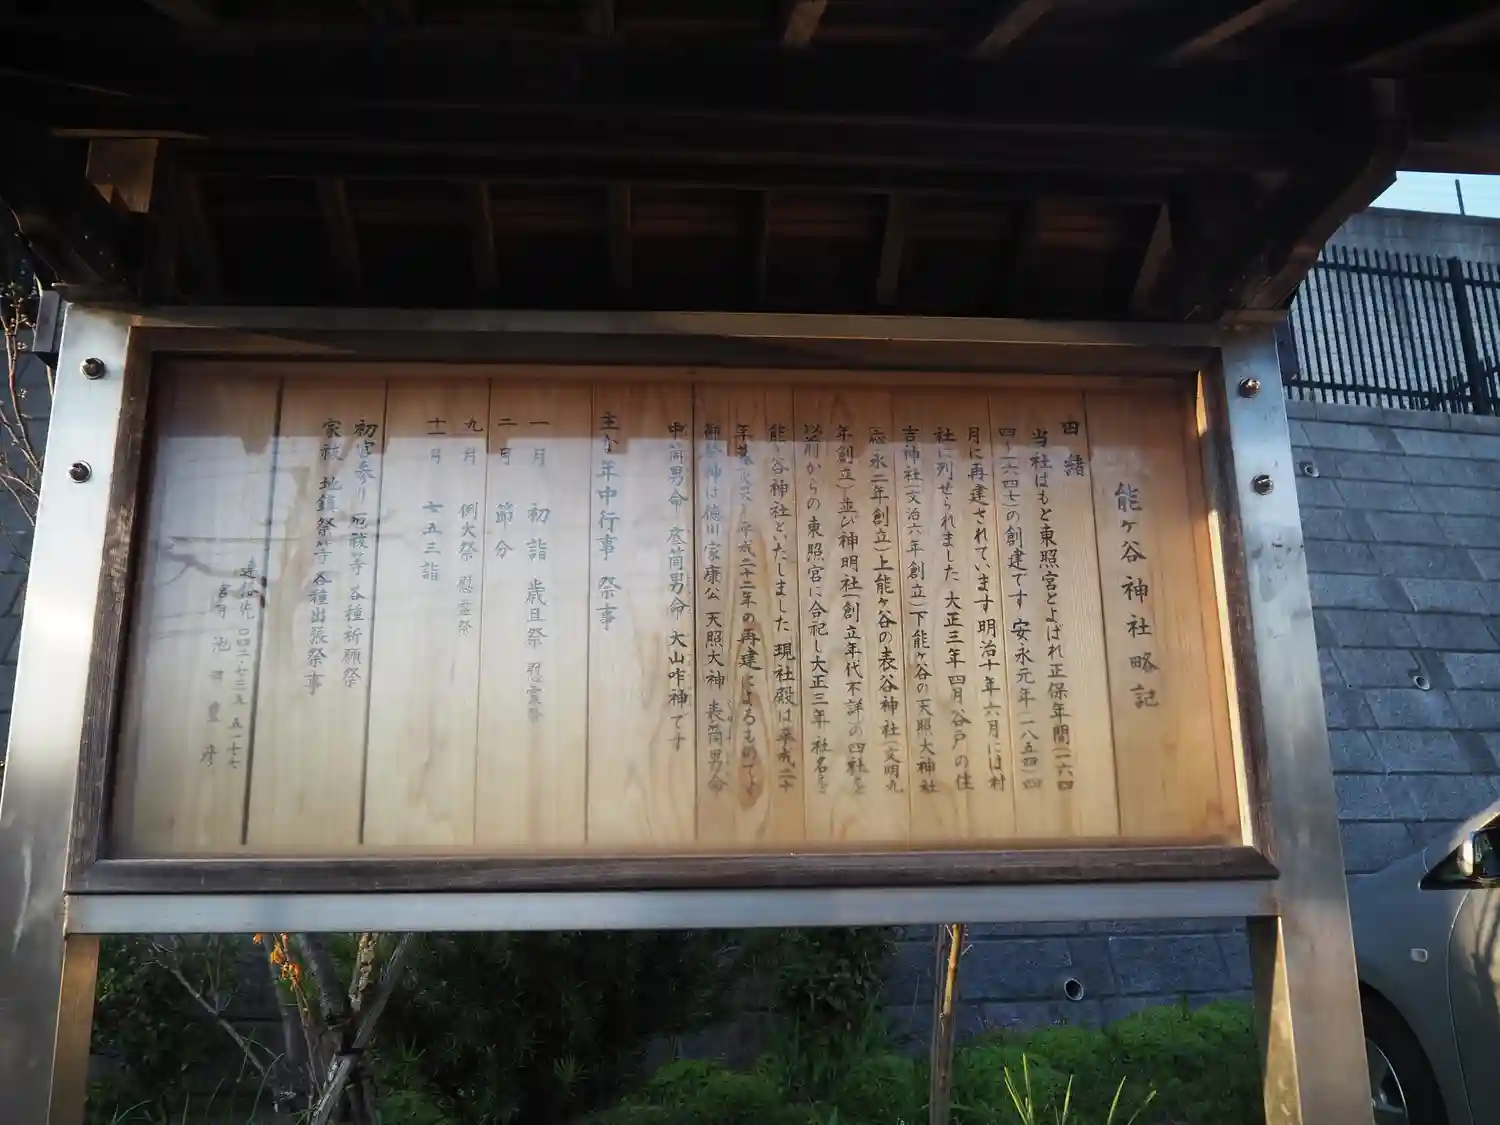 能ヶ谷神社略記
由緒
当社はもと東照宮とよばれ正保年間(一六四
四~一六四七)の創建です 安永元年(一八五四)四
月に再建されています 明治十年六月には村
社に列せられました 大正三年四月谷戸の住
吉神社(文治六年創立)下能ヶ谷の天照大神社
永二年創立)上能ヶ谷の表谷神社(文明九
年創立)並び神明社(創立年代不詳)の四社を
以前からの東照宮に合祀し大正三年 社名を
能ヶ谷神社といたしました 現社殿は平成二十
年 平成二十二年の再建によるものです
御祭神は徳川家康公 天照大神 表筒男命
中筒男命 底筒男命 大山咋神です
主な年中行事 祭事
一月 初詣 歳旦祭 慰霊祭
二月 節分
九月 例大祭 慰霊祭
十一月 七五三詣
初宮参り 厄祓等 各種祈願祭
家祓 地鎮祭等 各種出張祭事
連絡先 〇四二-七三五-五一七七
宮司 池田豊彦